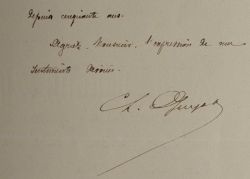 depuis cinquante ans.
Agréez, Monsieur, l'expression de mes
sentiments
Ch.